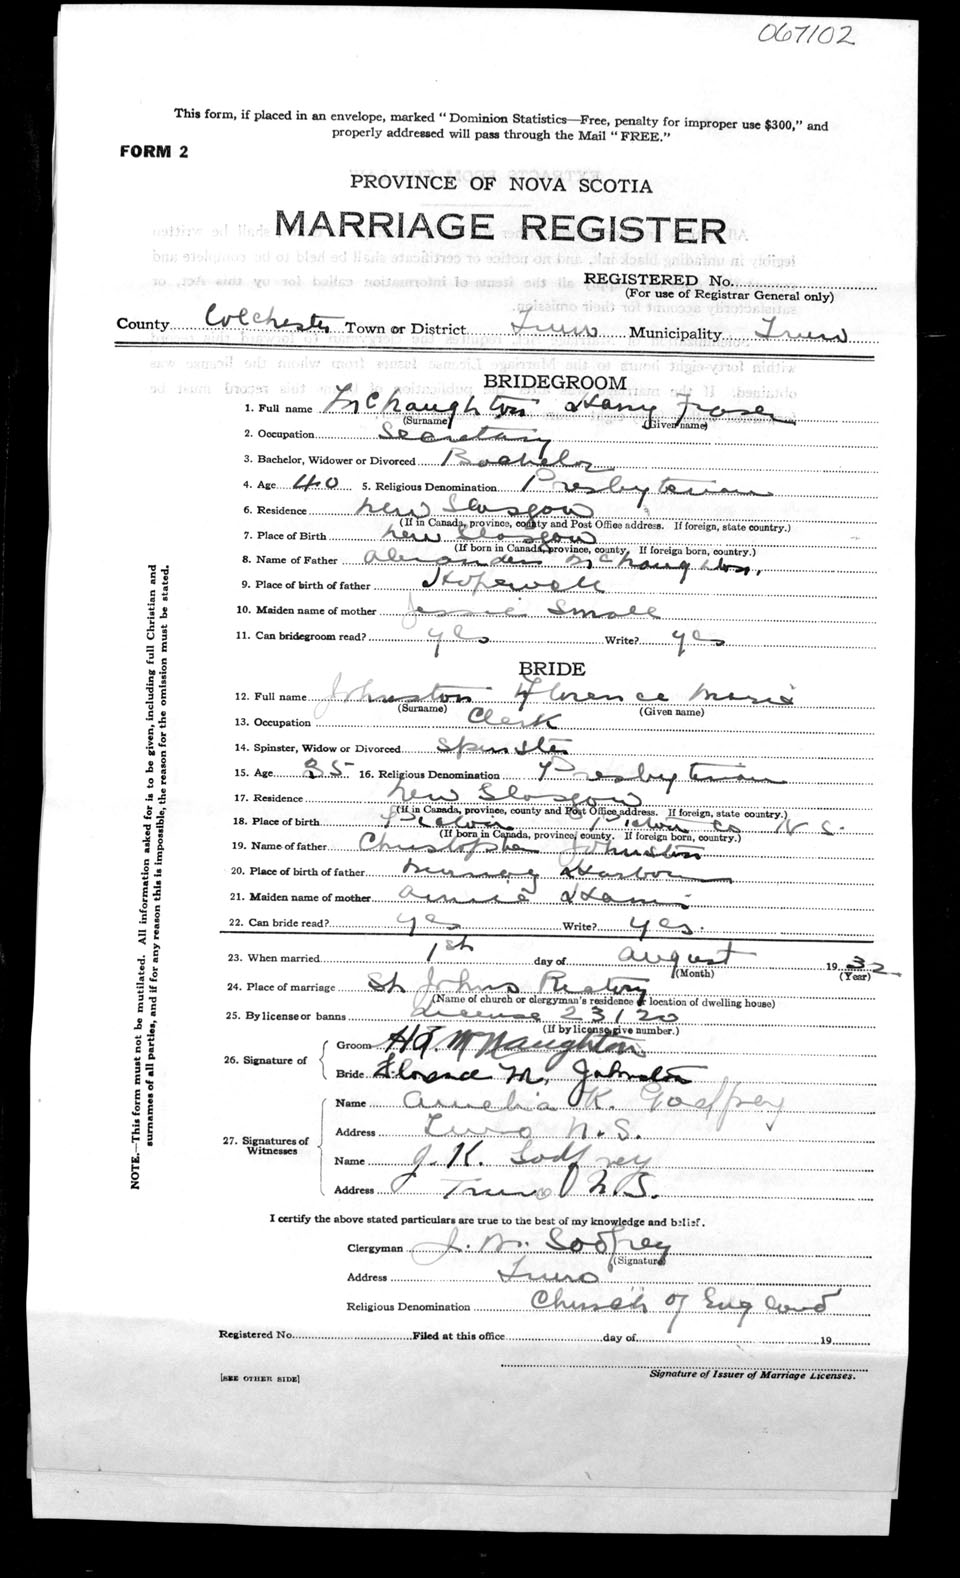 067102
This form, if placed in an envelope, marked "Dominion Statistics—Free, penalty for improper use $300," and
properly addressed will pass through the Mail "FREE."
FORM 2
PROVINCE OF NOVA SCOTIA
MARRIAGE REGISTER
REGISTERED No.
(For use of Registrar General only)
County Colchester Town or District Truro Municipality Truro
BRIDEGROOM
1. Full name McNaughton Harry Fraser
(Surname) (Given name)
2. Occupation Secretary
3. Bachelor, Widower or Divorced Bachelor
4. Age 40 5. Religious Denomination Presbyterian
6. Residence New Glasgow
(If in Canada, province, county and Post Office address. If foreign, state country.)
7. Place of Birth New Glasgow
(If born in Canada, province, county. If foreign born, country.)
8. Name of Father Alexander McNaughton.
9. Place of birth of father Hopewell
10. Maiden name of mother Jessie Small
11. Can bridegroom read? yes Write? yes
BRIDE
12. Full name Johnston Florence Marie
(Surname) (Given name)
13. Occupation Clerk
14. Spinster, Widow or Divorced Spinster
15. Age 35 16. Religious Denomination Presbyterian
17. Residence New Glasgow
(If in Canada, province, county and Post Office address. If foreign, state country.)
18. Place of birth Pictou Co N.S.
(If born in Canada, province, county. If foreign born, country.)
19. Name of father Christopher Johnston
20. Place of birth of father Murray Harbour
21. Maiden name of mother Annie
22. Can bride read? yes Write? yes.
23. When married 1st day of August 1932
(Month) (Year)
24. Place of marriage St Johns Rectory
(Name of church or clergyman's residence or location of dwelling house)
25. By license or banns License 23120
(If by license, give number.)
26. Signature of
Groom H.F. McNaughton
Bride Florence M. Johnston
27. Signatures of Witnesses
Name Amelia K. Godfrey
Address Truro N.S.
Name J. K. Godfrey
Address Truro N.S.
I certify the above stated particulars are true to the best of my knowledge and belief.
Clergyman J. M. Godfrey
(Signature)
Address Truro
Religious Denomination Church of England
Registered No. Filed at this office day of 19
Signature of Issuer of Marriage Licenses.
[SEE OTHER SIDE]
NOTE.—This form must not be mutilated. All information asked for is to be given, including full Christian and
surnames of all parties, and if for any reason this is impossible, the reason for the omission must be stated.